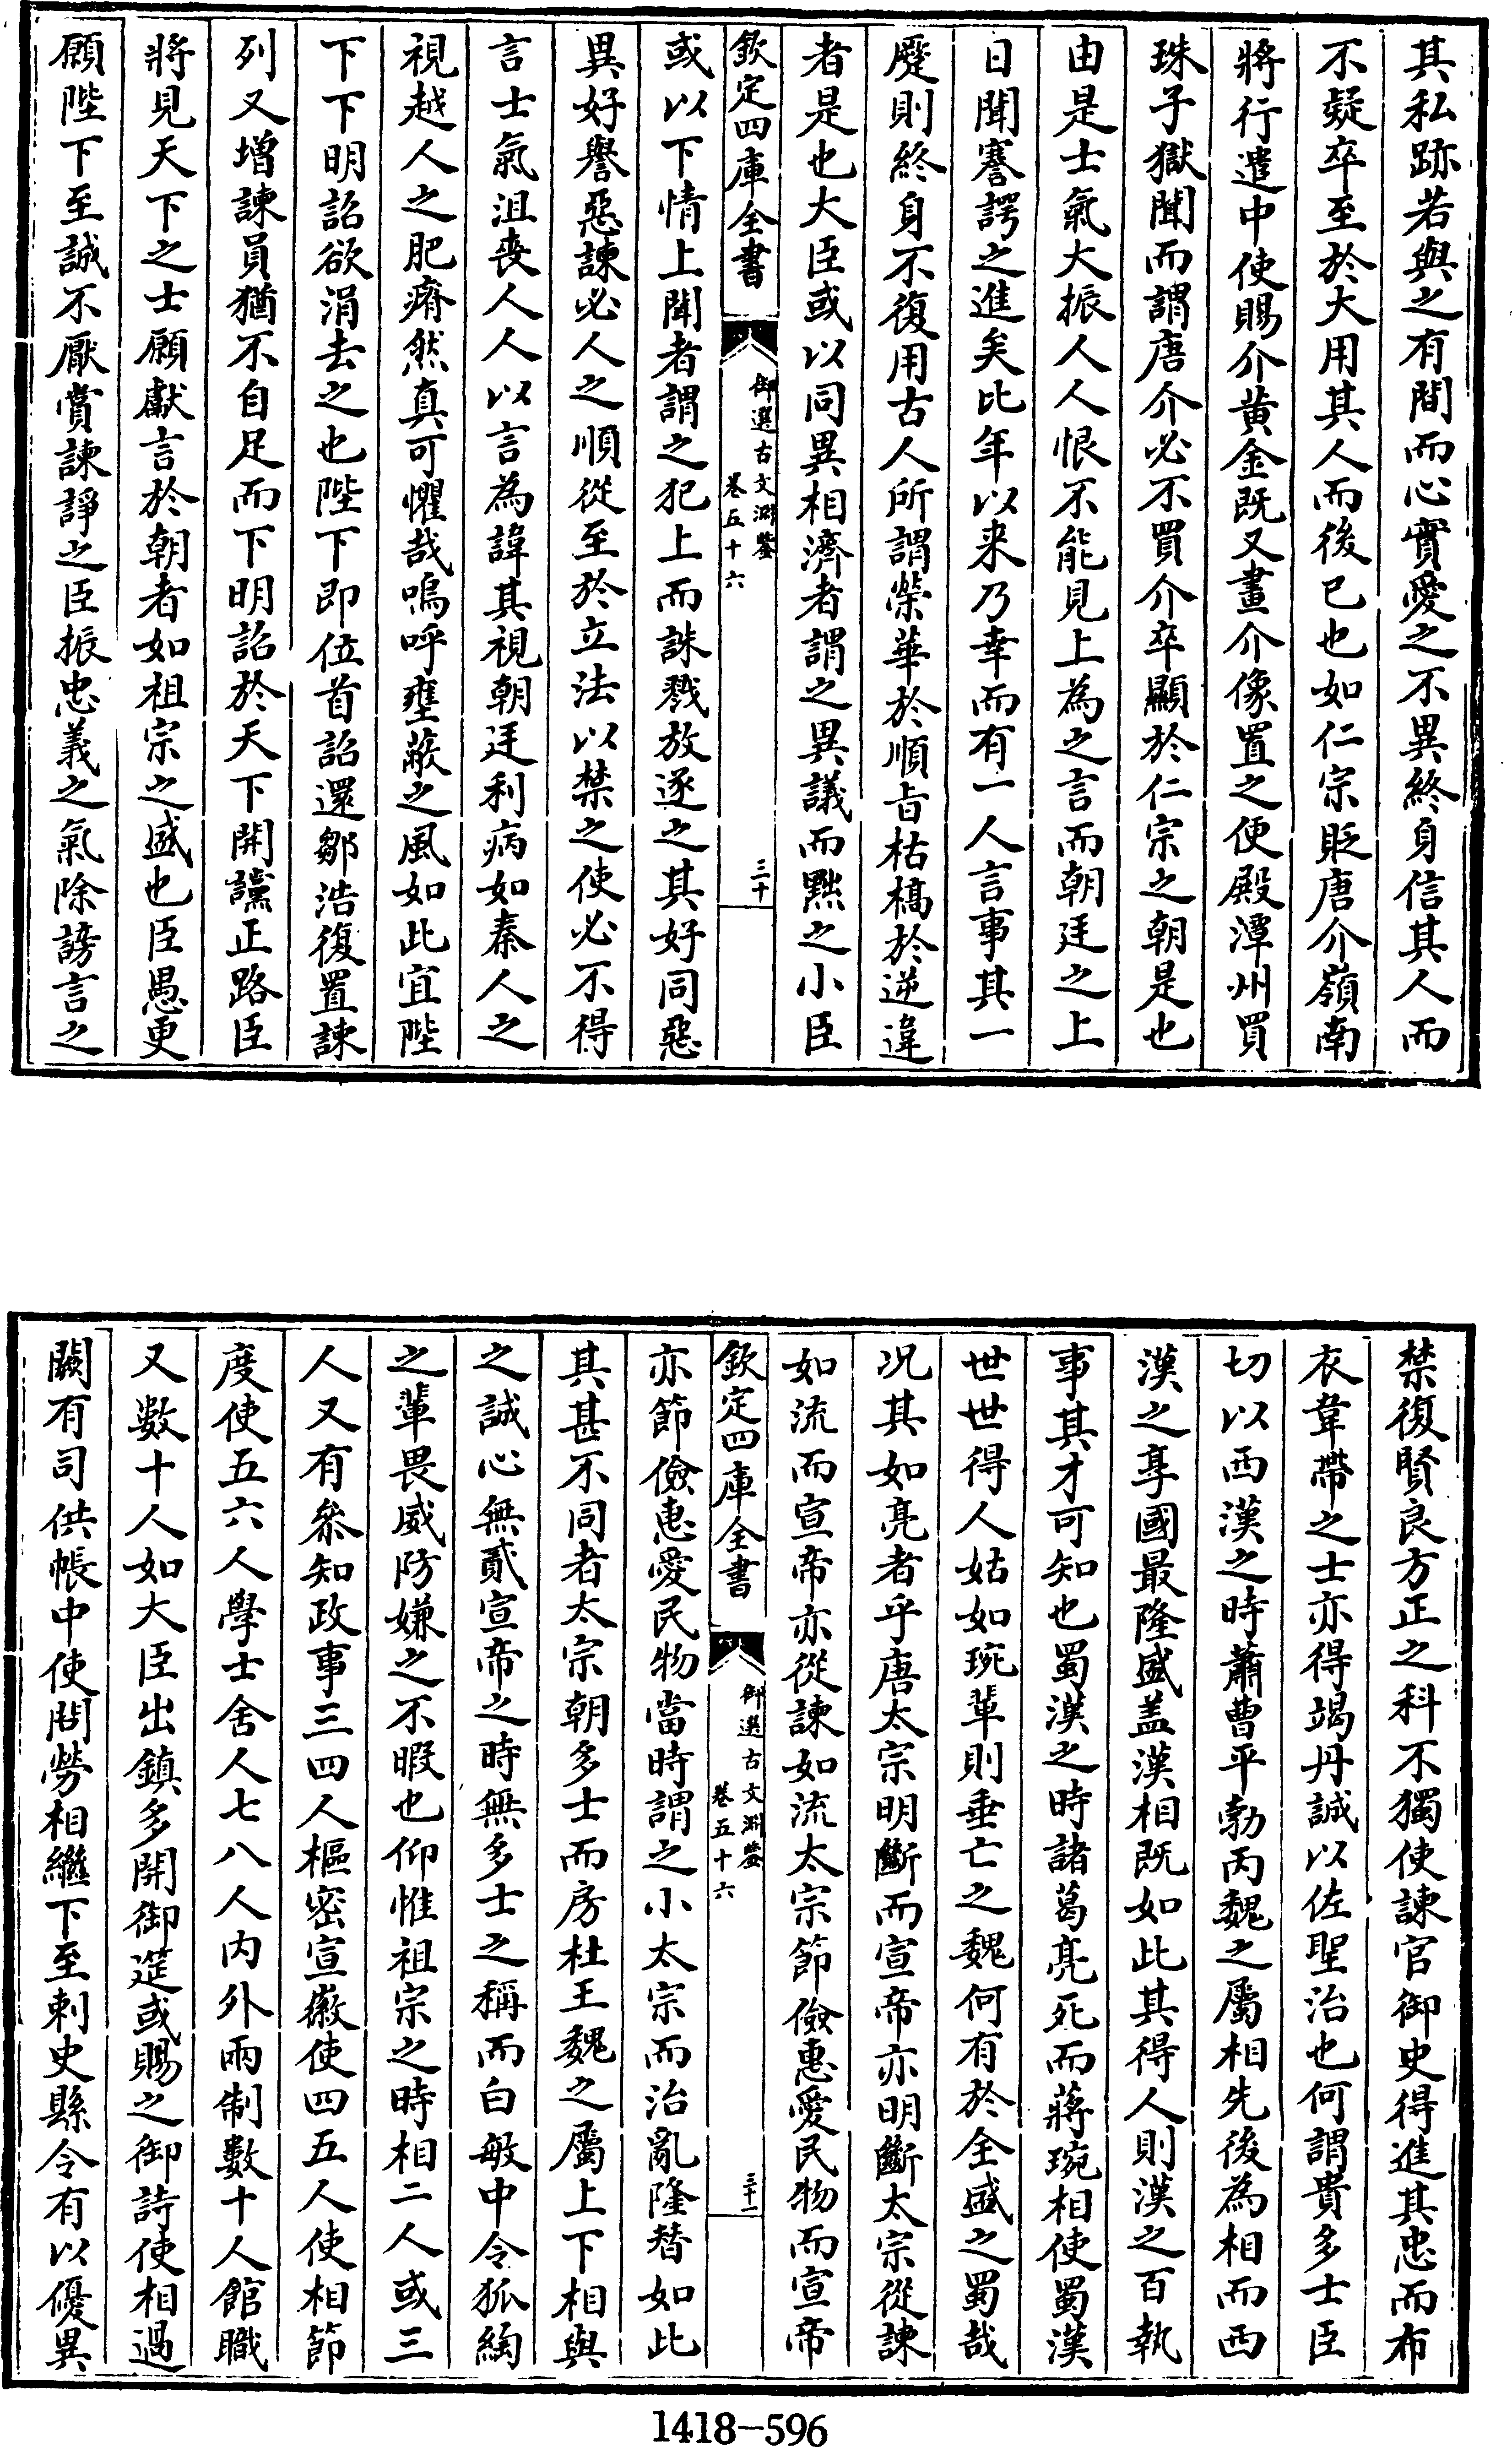 其私跡若與之有間而心實愛之不異終身信其人而
不疑卒至於大用其人而後已也如仁宗貶唐介嶺南
將行遣中使賜介黄金既又畫介像置之便殿潭州買
珠子獄聞而謂唐介必不買介卒顯於仁宗之朝是也
由是士氣大振人人恨不能見上為之言而朝廷之上
日聞謇諤之進矣比年以来乃幸而有一人言事其一
廢則終身不復用古人所謂榮華於順旨枯槁於逆違
者是也大臣或以同異相濟者謂之異議而黜之小臣
欽定四庫全書
御選古文淵鑒
卷五十六
三十
或以下情上聞者謂之犯上而誅戮放逐之其好同惡
異好譽惡諫必人之順從至於立法以禁之使必不得
言士氣沮喪人人以言為諱其視朝廷利病如秦人之
視越人之肥瘠然真可懼哉嗚呼壅蔽之風如此宜陛
下下明詔欲涓去之也陛下即位首詔還鄒浩復置諫
列又增諫員猶不自足而下明詔於天下開讜正路臣
將見天下之士願獻言於朝者如祖宗之盛也臣愚更
願陛下至誠不厭賞諫諍之臣振忠義之氣除謗言之
禁復賢良方正之科不獨使諫官御史得進其忠而布
衣韋帶之士亦得竭丹誠以佐聖治也何謂貴多士臣
切以西漢之時蕭曹平勃丙魏之屬相先後為相而西
漢之享國最隆盛盖漢相既如此其得人則漢之百執
事其才可知也蜀漢之時諸葛亮死而蔣琬相使蜀漢
世世得人姑如琬輩則垂亡之魏何有於全盛之蜀哉
况其如亮者乎唐太宗明斷而宣帝亦明斷太宗從諫
如流而宣帝亦從諫如流太宗節儉惠愛民物而宣帝
欽定四庫全書
御選古文淵鑒
卷五十六
三十一
亦節儉惠愛民物當時謂之小太宗而治亂隆替如此
其甚不同者太宗朝多士而房杜王魏之屬上下相與
之誠心無貳宣帝之時無多士之稱而白敏中令狐綯
之輩畏威防嫌之不暇也仰惟祖宗之時相二人或三
人又有參知政事三四人樞密宣徽使四五人使相節
度使五六人學士舍人七八人内外兩制數十人館職
又數十人如大臣出鎮多開御筵或賜之御詩使相過
闕有司供帳中使問勞相繼下至刺史縣令有以優異
1418-596